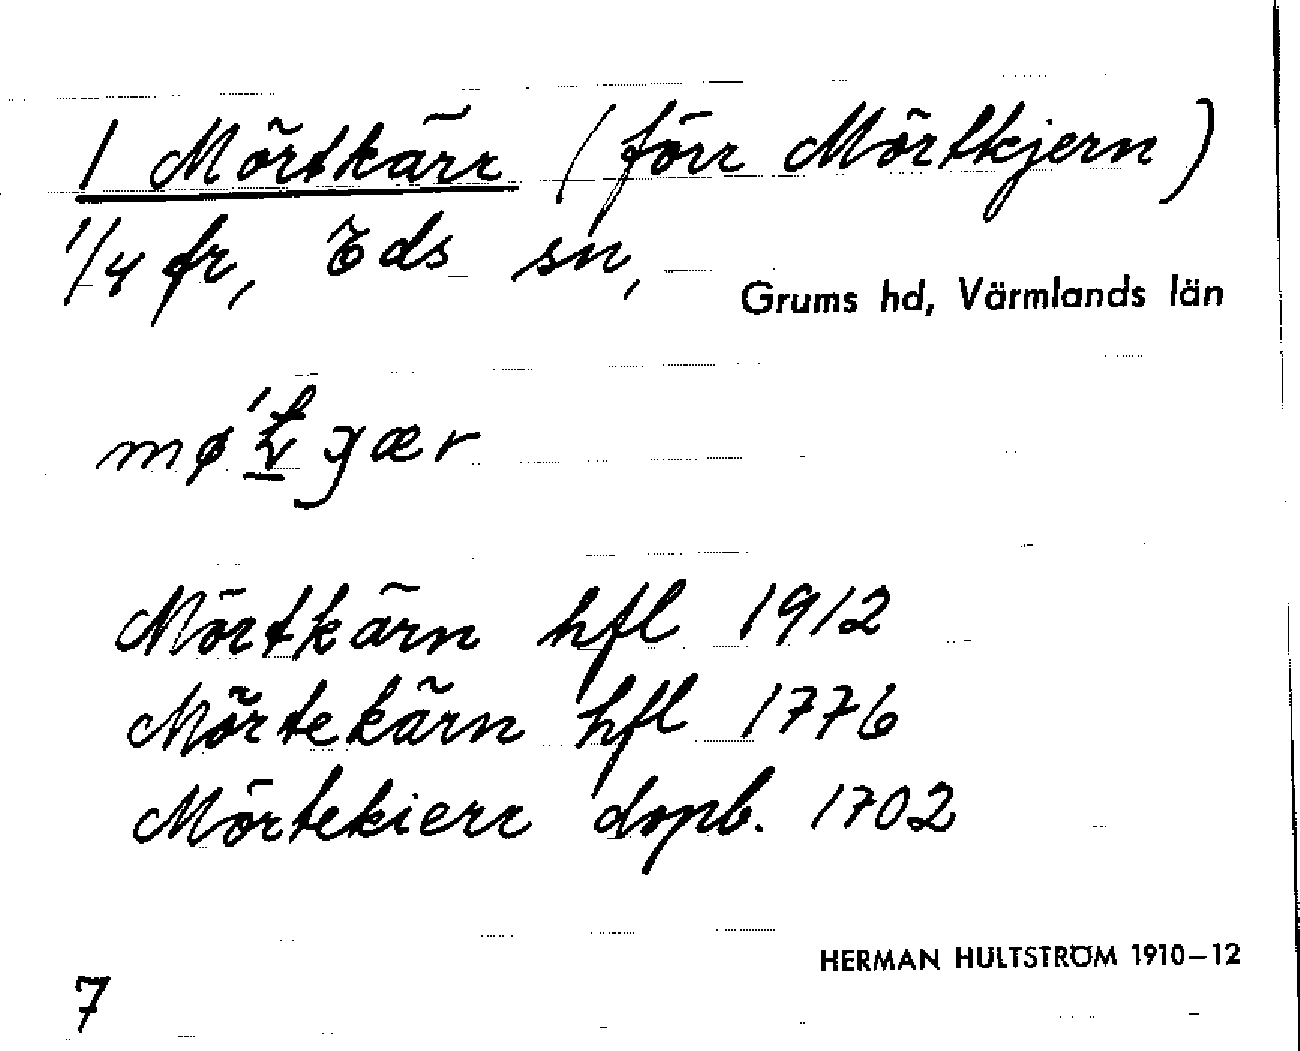 1 Mörtkärr (förr Mörtkjern)
1/4 fr, Eds sn,
Grums hd, Värmlands län
Mörtkärn hfl 1912
Mörtekärn hfl 1776
Mörtekierr dopb. 1702
HERMAN HULTSTRÖM 1910-12
7